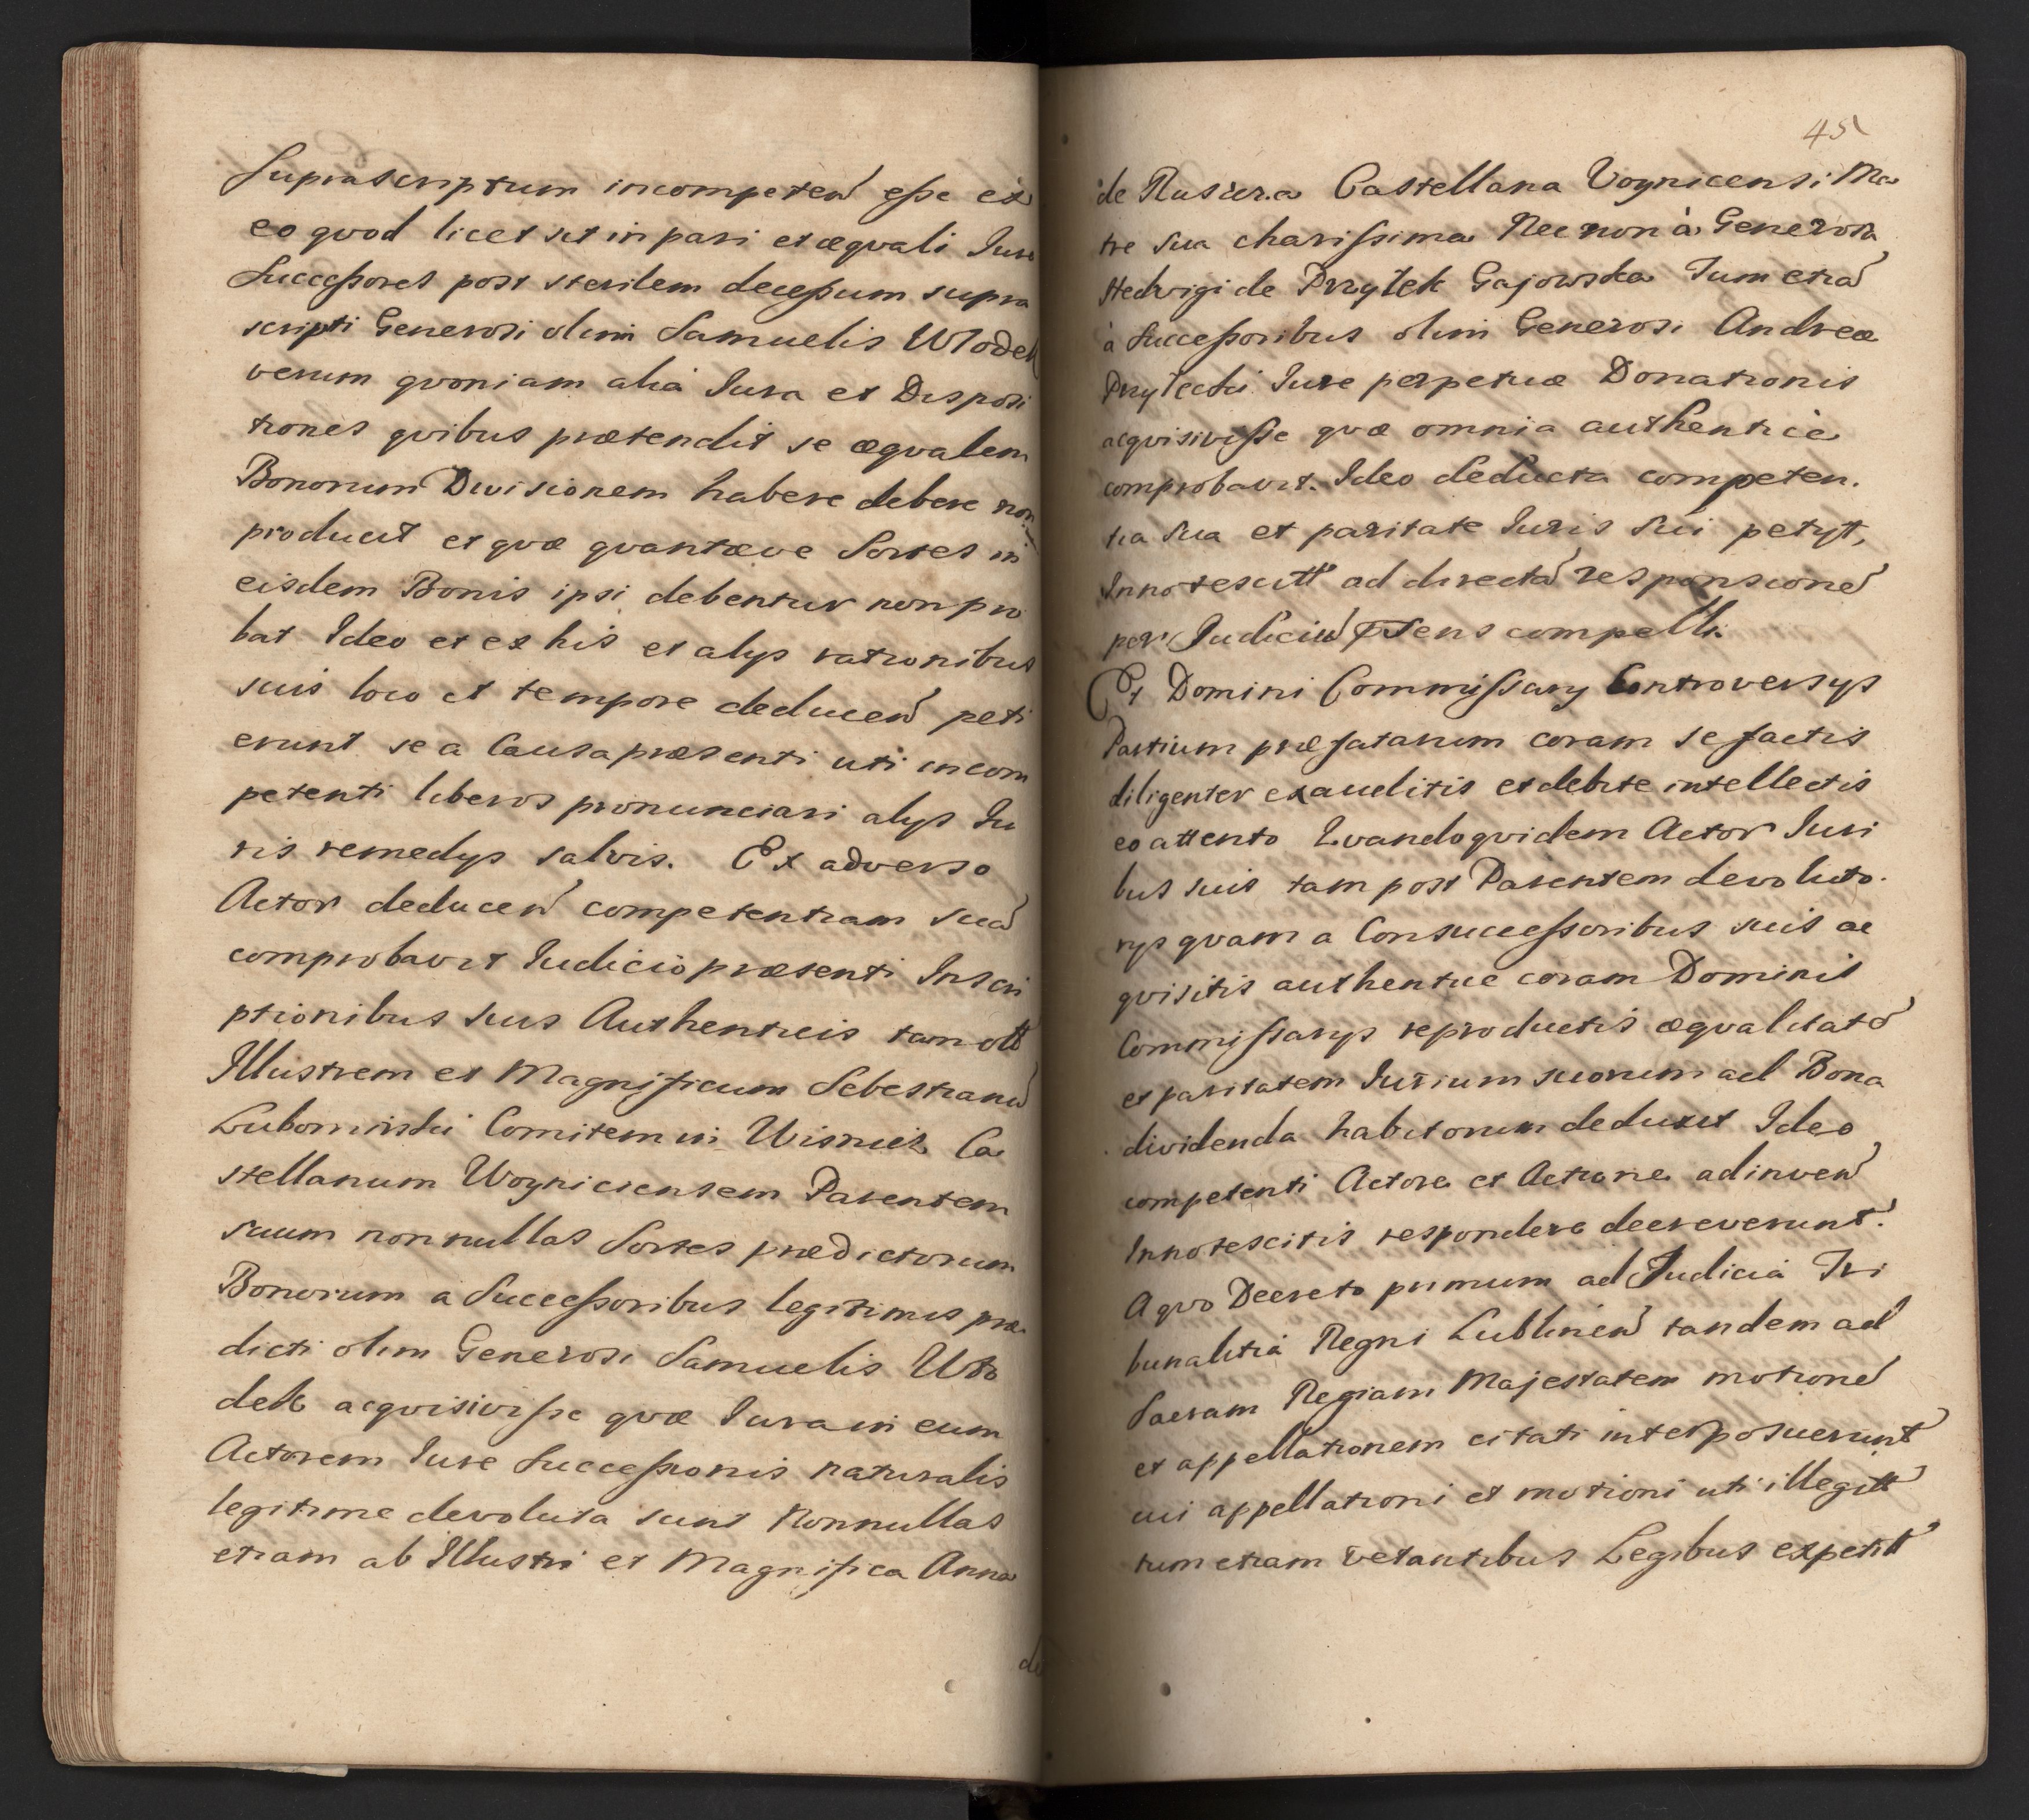 Suprascriptum incompeten esse ex
eo qvod licet sit in pari et æqvali Jure
Successores post sterilem decessum supra
scripti Generosi olim Samuelis Wlodek
verum qvoniam alia Jura et Disposi
tiones qvibus prætendit se æqvalem
Bonorum Divisionem habere debere non
producit et qvæ qvantæve Sortes in
eisdem Bonis ipsi debentur non pro
bat Ideo et ex his et alys rationibus
suis loco et tempore deducen peti
erunt se a Causa præsenti uti incom
petenti liberos pronunciari alys Ju
ris remedys salvis. Ex adverso
Actor deducen competentiam sua
comprobavit Judicio præsenti Inscri
ptionibus suis Authenticis tam olt
Illustrem et Magnificum Sebestianu
Lubomirski Comitem in Wisnicz Ca
stellanum Woyniciensem Parentem
suum nonnullas Sortes prædictorum
Bonorum a Successoribus legitimis præ
dicti olim Generosi Samuelis Wlo
dek acqvisivisse qvæ Jura in eum
Actorem Jure Successionis naturalis
legitime devoluta sunt Nonnullas
etiam ab Illustri et Magnifica Anna
de
45
de Rusiecza Castellana Voynicensi Ma
tre sua charissima Nec non à Generosa
Hedvigi de Przylek Gajowska Tum etia
à Successoribus olim Generosi Andreæ
Przylecki Jure perpetuæ Donationis
acqvisivisse qvæ omnia authenticè
comprobavit. Ideo deducta competen.
tia sua et paritate Juris sui petyt,
Innotescitt ad directa responsione
per Judiciu psens compelli.
Et Domini Commissary Controversys
Partium præfatarum coram se factis
diligenter exauditis et debite intellectis
eo attento Qvandoqvidem Actor Juri
bus suis tam post Parentem devoluto.
rys qvam a Consuccessoribus suis ac
qvisitis authentice coram Dominis
Commissarys reproductis æqvalitate
et paritatem Jurium suorum ad Bona
dividenda habitorum deduxit Ideo
competenti Actore et Actione adinven
Innotescitis respondere decreverunt.
A qvo Decreto primum ad Judicia Tri
bunalitia Regni Lublinen tandem ad
Sacram Regiam Majestatem motione
et appellationem citati interposuerunt
cui appellationi et motioni uti illegitt
tum etiam vetantibus Legibus expetitt